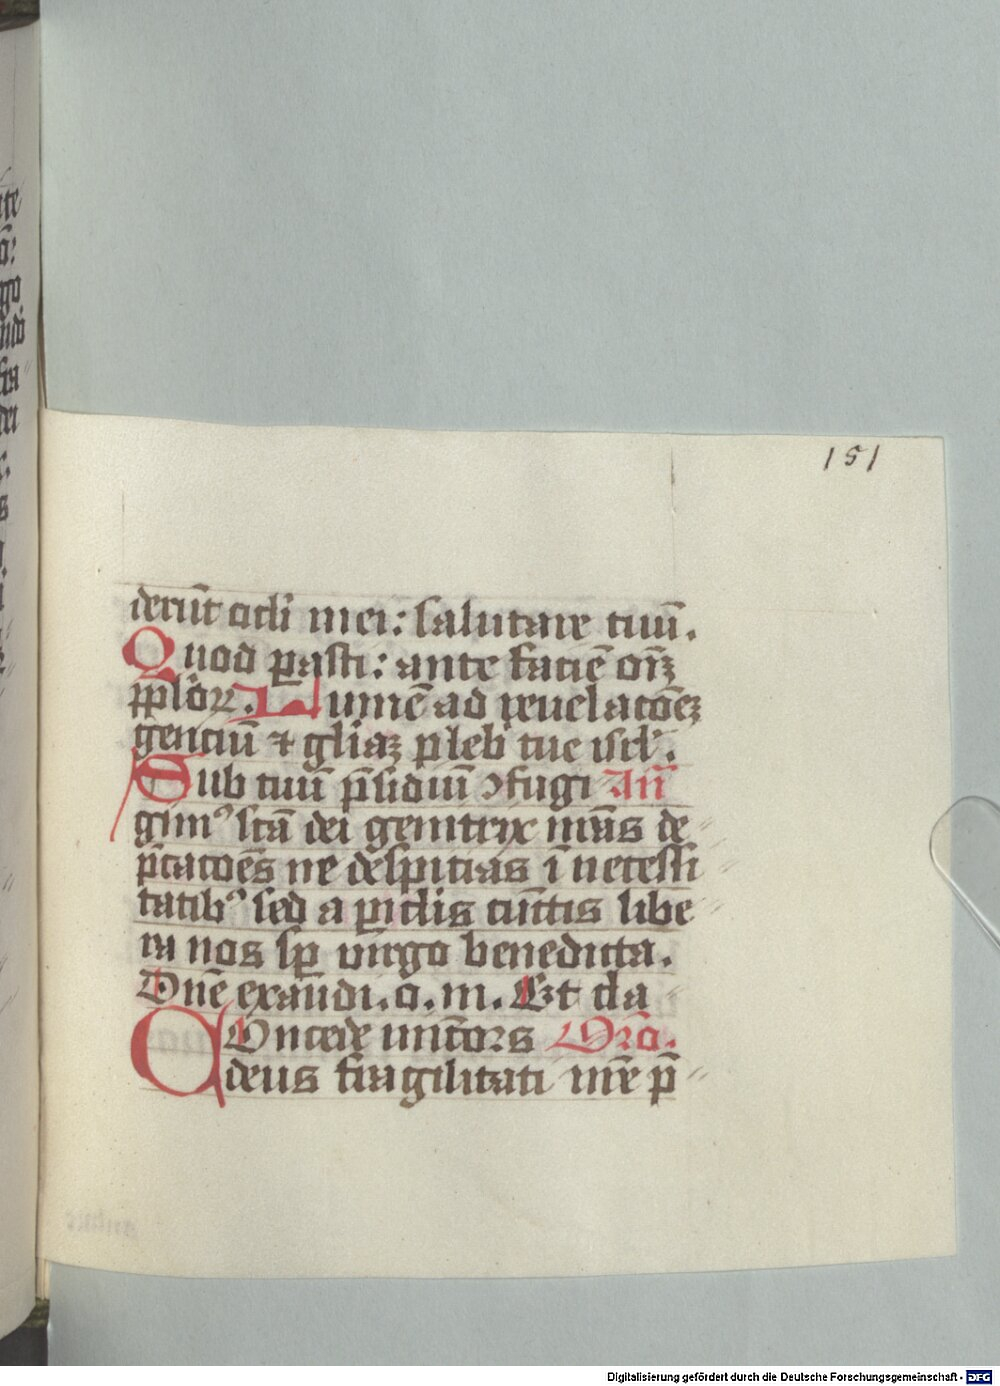 151
derūt ocli mei: salutare tuū.
Quod pasti: ante faciē oīm
pploꝝ. Lumē ad reuelacōeꝫ
genciū ⁊ gliaꝫ plebi tue isrl.
Sub tuū p̄sidiū ꝯfugi An̄
gimꝰ sctā dei genitrix nrās de
p̄cacōes ne despicias ī necessi
tatibꝰ sed a ꝑiclis cūctis libe
ra nos sꝑ virgo benedicta.
Dn̄e exaudi. o. m. Et cla
Concede mīcors Orō.
deus fragilitati nr̄e p̄
Digitalisierung gefördert durch die Deutsche Forschungsgemeinschaft - DFG